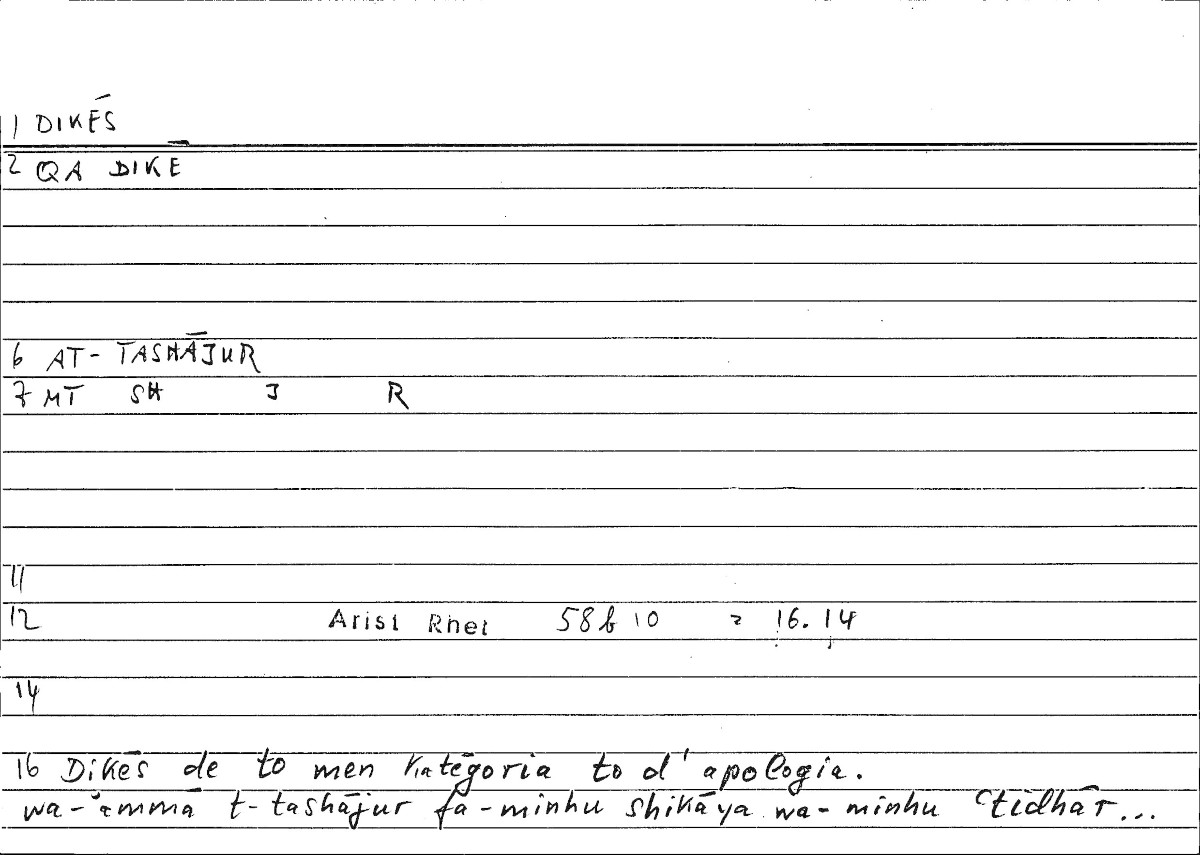 1 DIKĒS
2 QA DIKĒ
6 AT-TASHĀJUR
7 MT SH J R
11
12 Arist Rhet 58b10 = 16.14
14
16 Dikēs de to men katēgoria to d'apologia.
wa-ʾammā t-tashājur fa-minhu shikāya wa-minhu ʿtidhār...